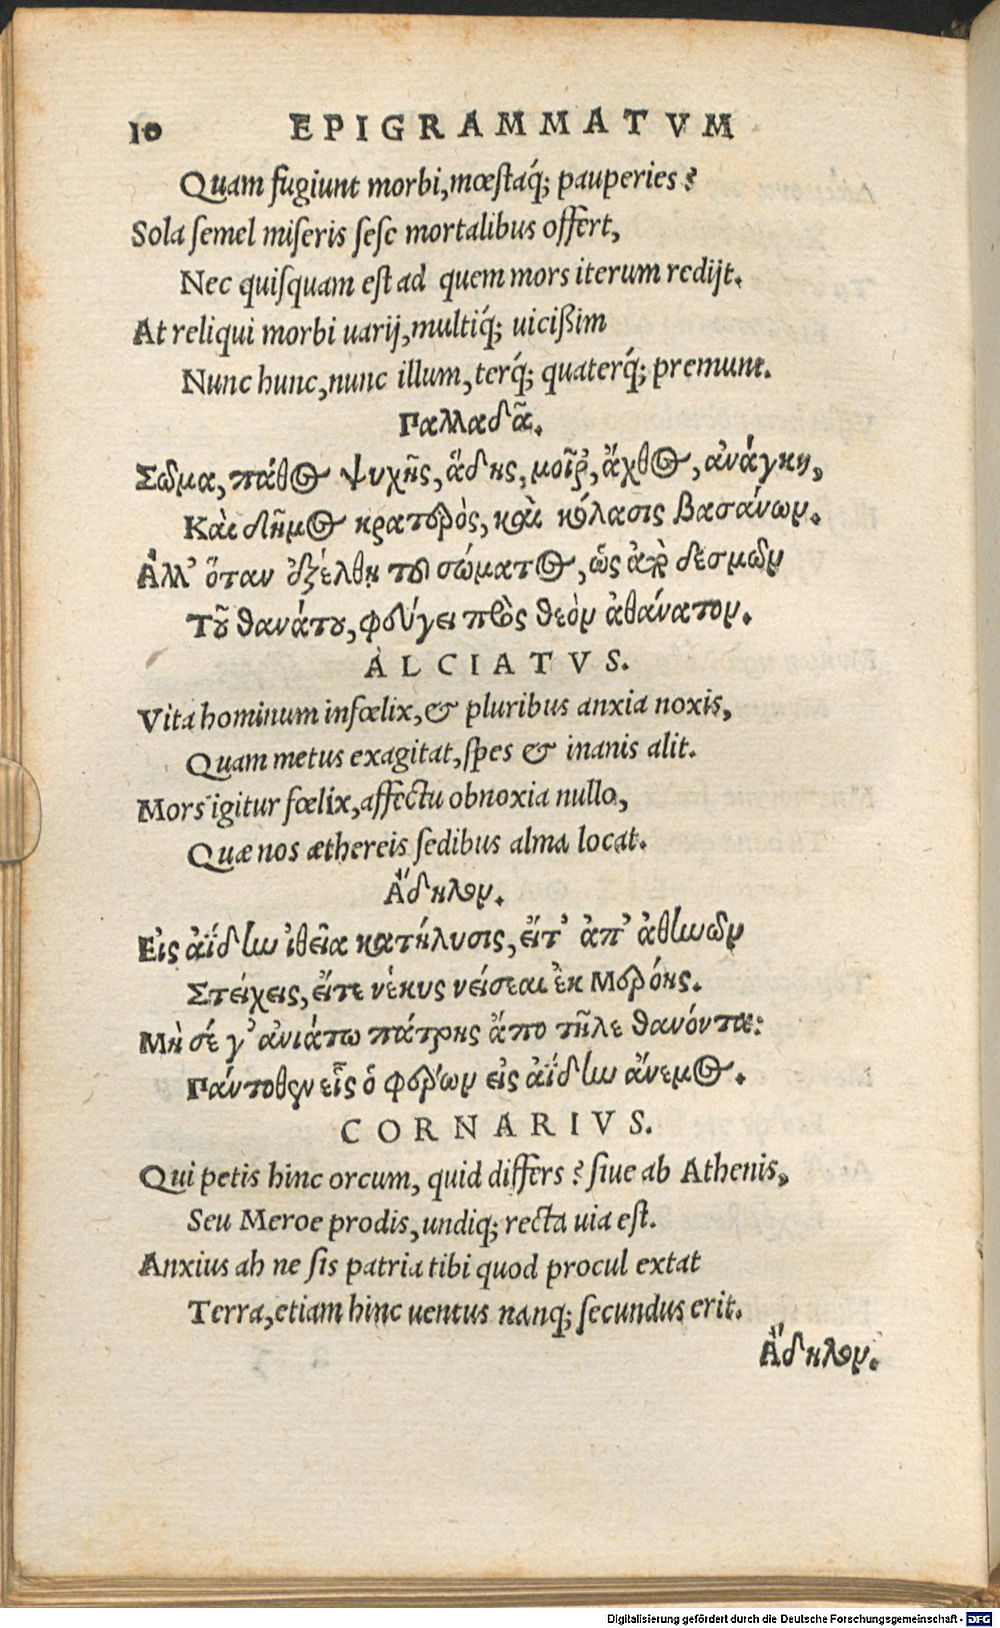 10 EPIGRAMMATVM
Quam fugiunt morbi, mœſtaq́; pauperies?
Sola ſemel miſeris ſeſe mortalibus offert,
Nec quiſquam eſt ad quem mors iterum redijt.
At reliqui morbi uarij, multiq́; uicißim
Nunc hunc, nunc illum, terq́; quaterq́; premunt.
Παλλαδᾶ.
Σῶμα, πάθος ψυχῆς, ᾅδης, μοῖρ', ἄχθος, ἀνάγκη,
Καὶ δῆμος κρατερὸς, καὶ κόλασις βασάνων.
Ἀλλ' ὅταν ἐξέλθῃ τοῦ σώματος, ὡς ἀπὸ δεσμῶν
Τοῦ θανάτου, φεύγει πρὸς θεὸν ἀθάνατον.
ALCIATVS.
Vita hominum infœlix, & pluribus anxia noxis,
Quam metus exagitat, ſpes & inanis alit.
Mors igitur fœlix, affectu obnoxia nullo,
Quæ nos æthereis ſedibus alma locat.
Ἄδηλον.
Εἰς ἀΐδην ἰθεῖα κατήλυσις, εἴτ' ἀπ' ἀθηνῶν
Στείχεις, εἴτε νέκυς νείσεαι ἐκ Μερόης.
Μὴ σέ γ' ἀνιάτω πάτρης ἄπο τῆλε θανόντα:
Πάντοθεν εἷς ὁ φέρων εἰς ἀΐδην ἄνεμος.
CORNARIVS.
Qui petis hinc orcum, quid differs? ſiue ab Athenis,
Seu Meroe prodis, undiq; recta uia eſt.
Anxius ah ne ſis patria tibi quod procul extat
Terra, etiam hinc uentus nanq; ſecundus erit.
Ἄδηλον.
Digitalisierung gefördert durch die Deutsche Forschungsgemeinschaft - DFG